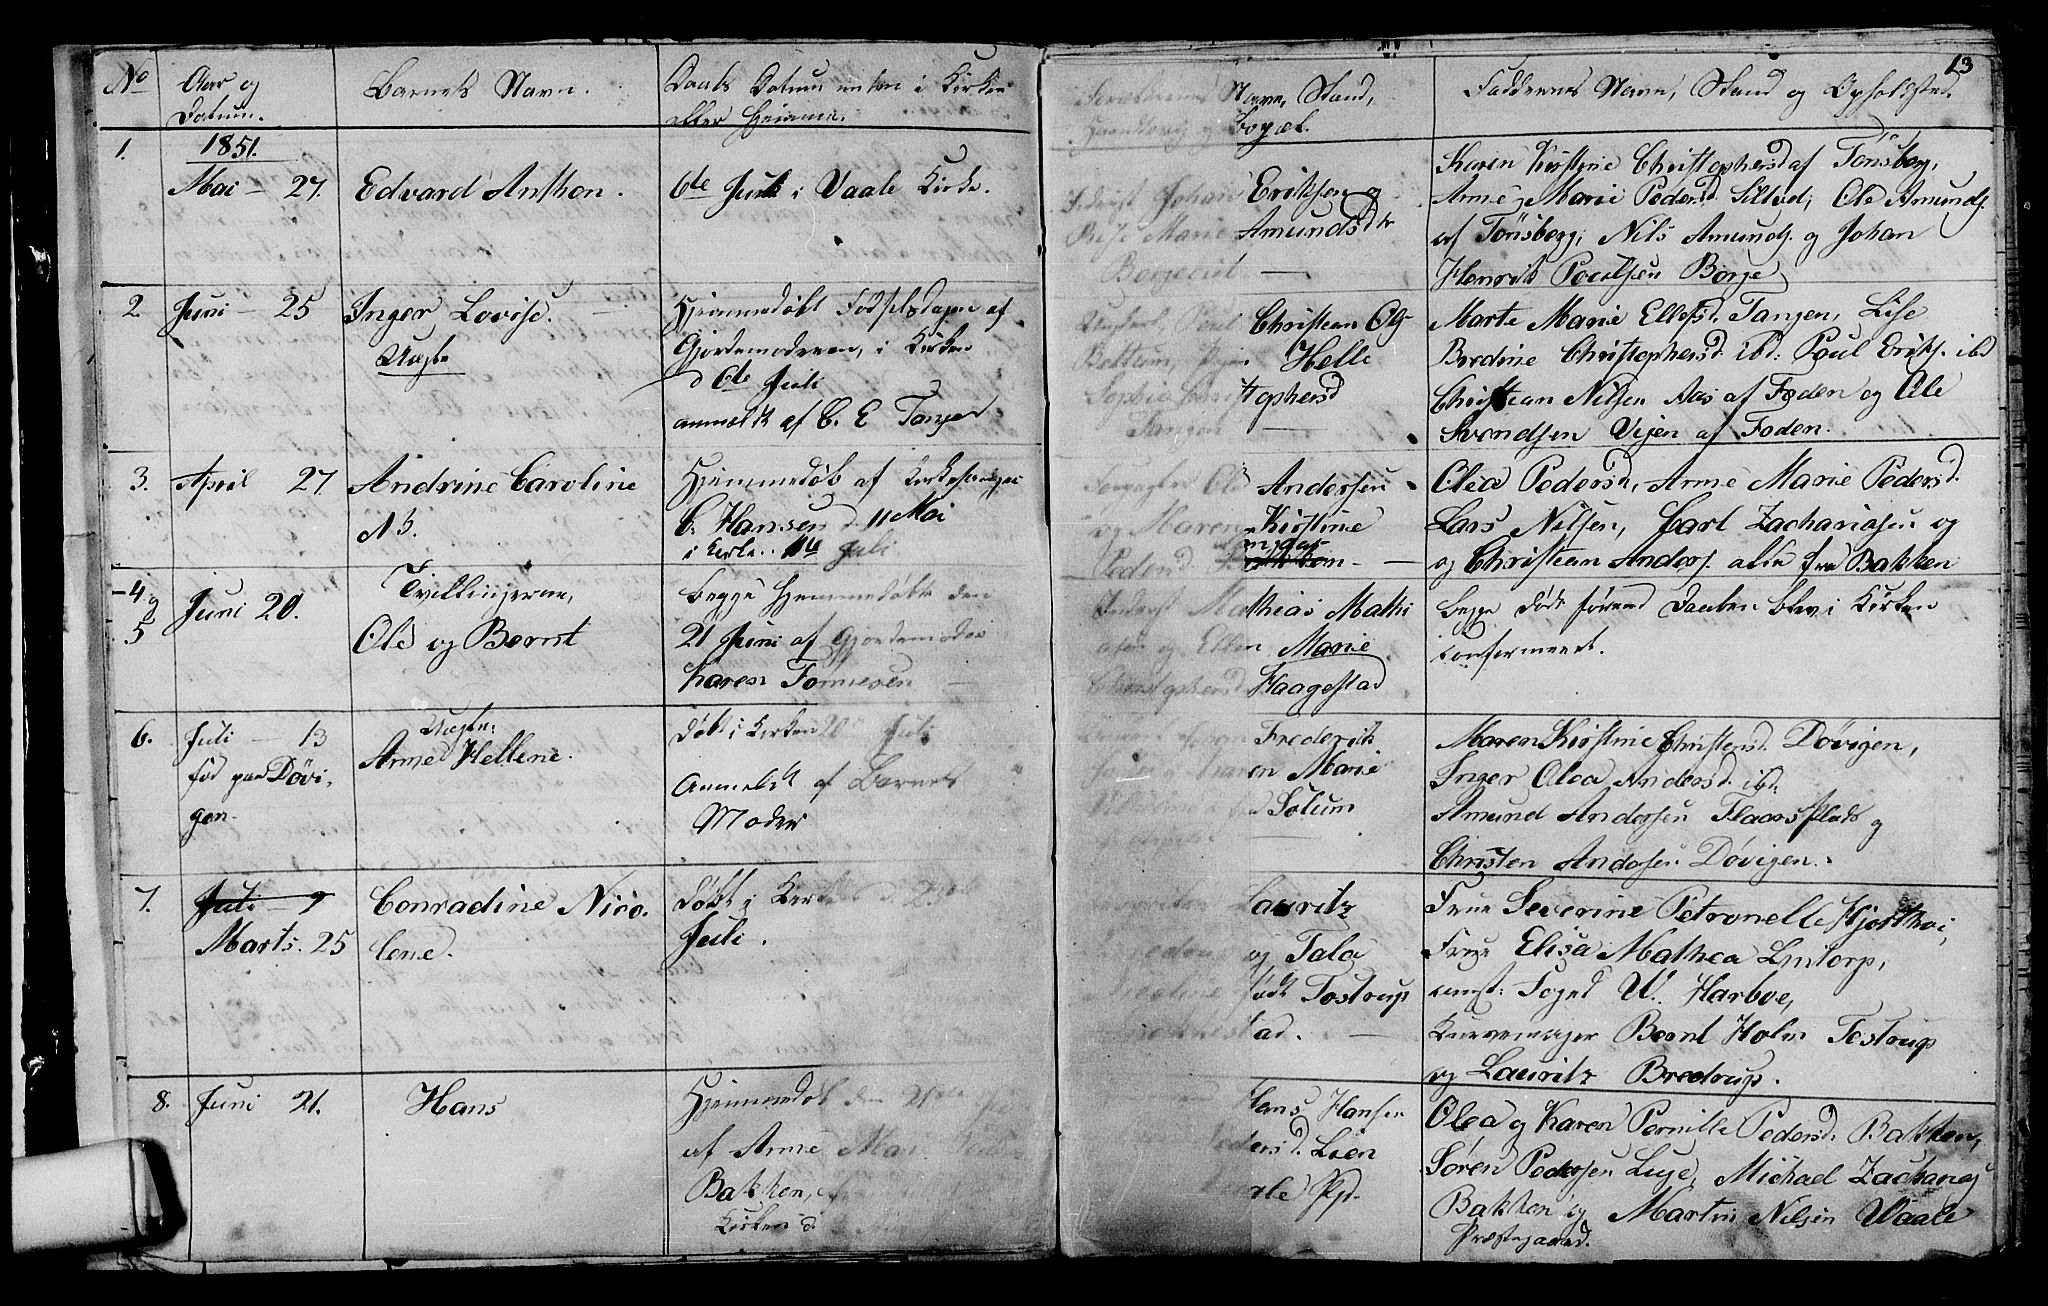 13
No
Aar og
Datum.
Barnets Navn.
Daabs Datum enten i Kirken
eller Hjemme.
Forældrenes Navn, Stand,
Haandtering og Bopæl.
Faddernes Navn, Stand og Opholdsted.
1.
1851.
Mai - 27.
Edvard Anthon.
6te Juli i Vaale Kirke.
Johan Eriksen og
Marie Amundsdtr
Borge
Karen Kirstine Christophersd af Tönsberg,
Anne Marie Pedersd Sillved, Ole Amunds.
af Tönsberg, Nils Amunds. og Johan
Henrik Poulsen Borge
2.
Juni - 25
Inger Lovise.
Uægte
Hjemmedöbt Födselsdagen af
Gjordemoderen, i Kirken
d 6te Juli
anmeldt af C. E. Tangen
Christian Ols
Helle
Sophie Christophersd
Tangen
Marte Marie Ellefsd Tangen, Lise
Bredine Christophersd. ibd: Paul Eriks. ibd
Christian Nilsen Aas af Foden og Ole
Svendsen Vejen af Foden.
3.
April 27.
Andrine Caroline
N3.
Hjemmedöb af Kirkesanger
C. Hansen d 11 Mai
i Kirken Juli
Ole Andersen
og Maren Kirstine
Pedersd
Olea Pedersd, Anne Marie Pedersd.
Lars Nilsen, Carl Zachariasen og
og Christian Anders. alle fra Bakken
4 og
5
Juni 20.
Tvillingerne,
Ole og Bernt
Begge Hjemmedöbte den
21 Juni af Gjordemoder
Karen Tonnesen
Mathias Mathi
asen og Ellen Marie
Christophersd Haagestad
Begge döde förend Daaben blev i Kirken
konfermeret.
6.
Juli - 13
föd paa Dövi-
gen.
Uægte.
Anne Hellene.
Döbt i Kirken Juli
Anmeldt af Barnets
Moder
Frederik
Maren Marie
Solum
Maren Kirstine Christensd. Dövigen,
Inger Olea Andersd. ibd:
Amund Andersen Flaars plads og
Christen Andersen Dövigen.
7.
Juli - 9
Marts. 25
Conradine Nico-
lene.
Döbt i Kirken d.
Juli.
Lauritz
og Tala
födt Tostrup
Frue Severine Petronelle Hjorthöi,
Frue Elisa Mathea Lintorp,
const: Foged W. Harboe,
Kurvemager Bernt Holm Tostrup
og Lauritz Bredrup.
8.
Juni 21.
Hans
Hjemmedöb den 21de
af Anne Marie
Bakken,
Kirken d.
Hans Hansen
Pedersd. Lien
Olea og Karen Pernille Pedersd. Bakken,
Sören Pedersen Luse, Michael Zacharias
Bakken og Martin Nilsen Vaale
Præstegaard.